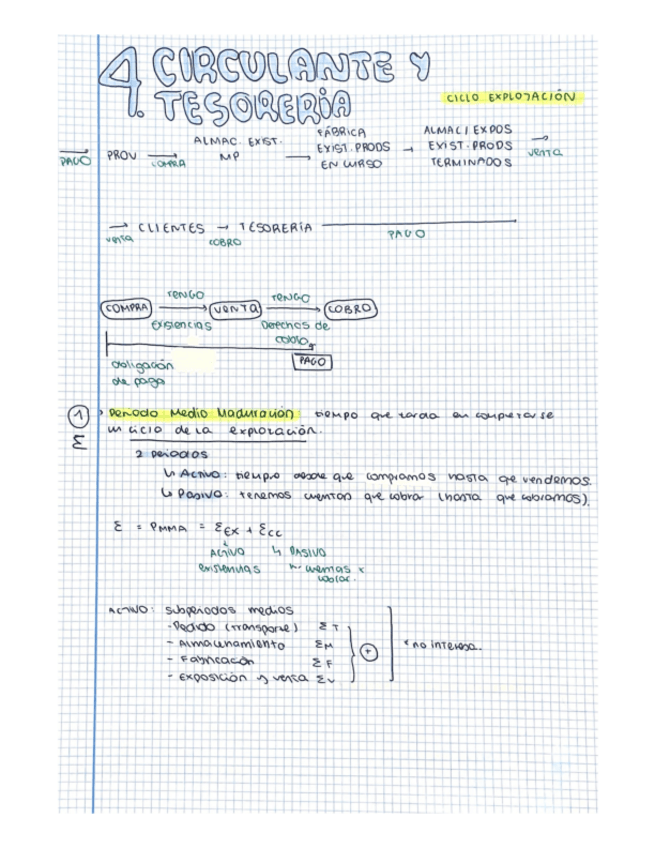 4. CIRCULANTE Y
TESORERÍA
CICLO EXPLOTACIÓN
PAGO → PROV → COMPRA ALMAC. EXIST. MP → FÁBRICA EXIST. PRODS EN CURSO → ALMAC / EXPOS EXIST. PRODS TERMINADOS → venta
→ venta CLIENTES → COBRO TESORERÍA PAGO
COMPRA TENGO Existencias VENTA TENGO Derechos de cobro COBRO
obligación de pago PAGO
1 Periodo Medio Maduración: tiempo que tarda en completarse
Ɛ un ciclo de la explotación.
2 periodos
↳ Activo: tiempo desde que compramos hasta que vendemos.
↳ Pasivo: tenemos cuentas que cobrar (hasta que cobramos).
Ɛ = PMMA = Ɛ EX + Ɛ CC
↓ ACTIVO ↳ PASIVO
existencias cuentas x
cobrar.
ACTIVO: subperiodos medios
- Pedido (transporte) Ɛ T
- Almacenamiento Ɛ M
- Fabricación Ɛ F
- Exposición y venta Ɛ V
+
* no interesa.